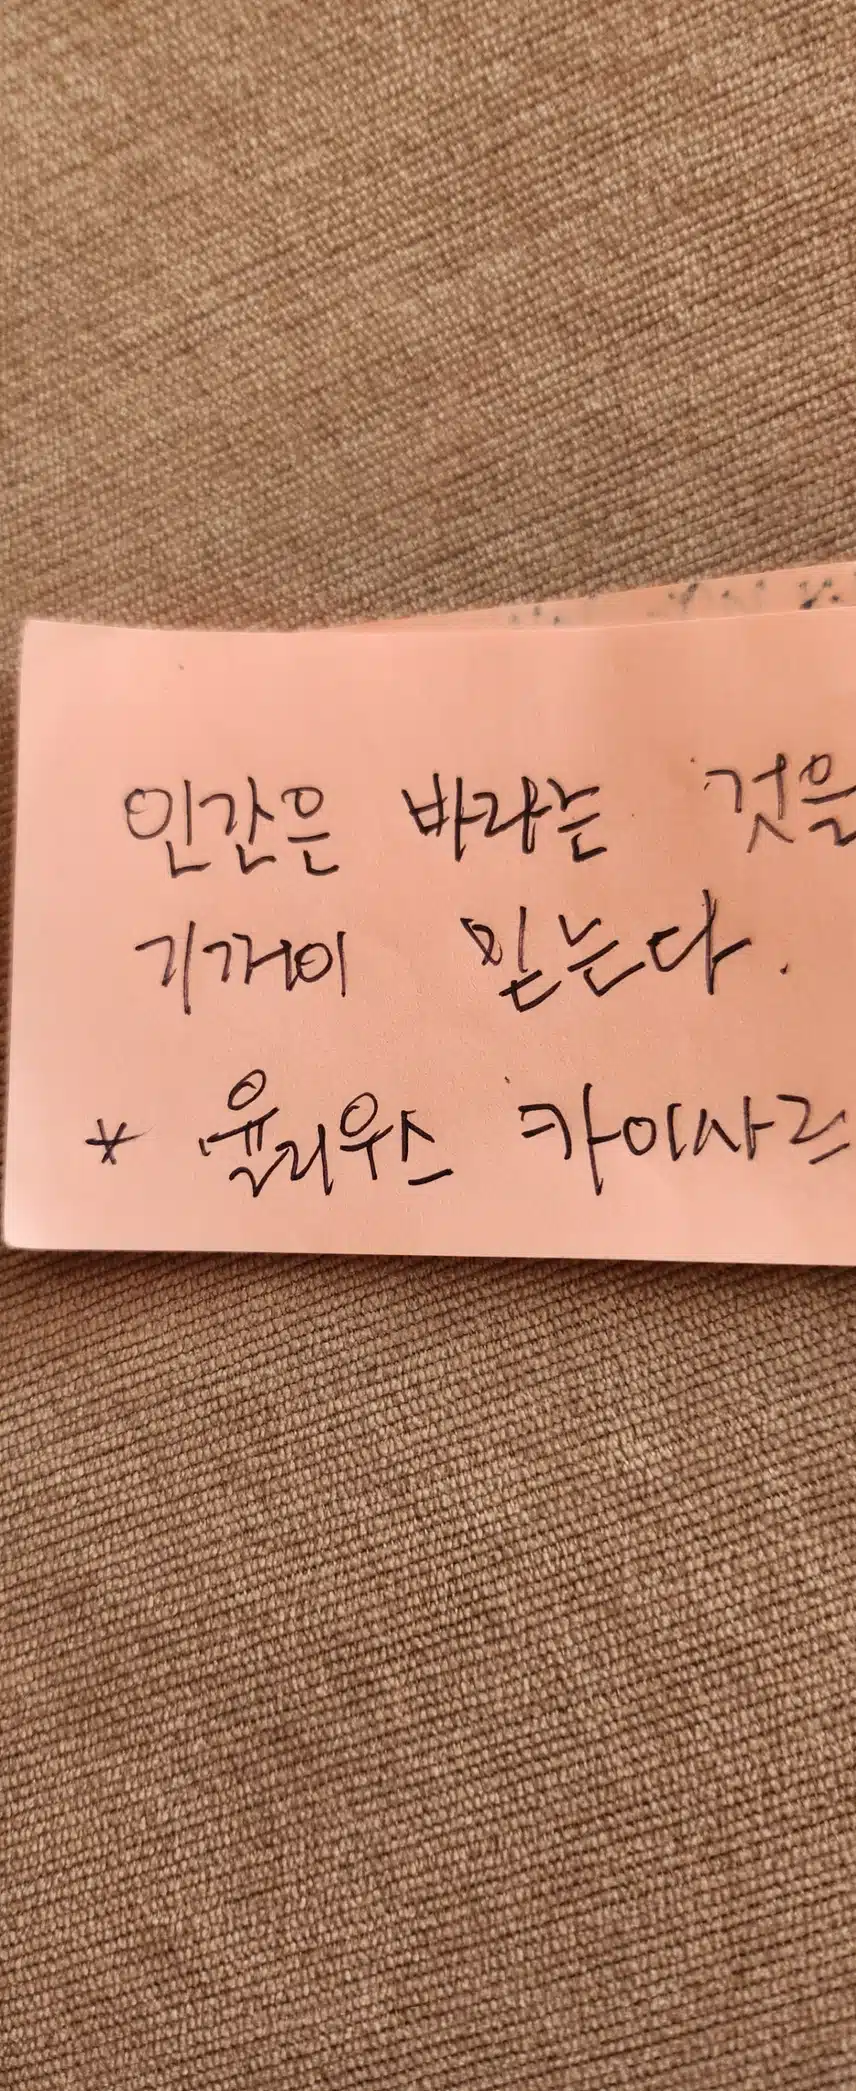 인간은 바라는 것을
기꺼이 믿는다.
* 율리우스 카이사르